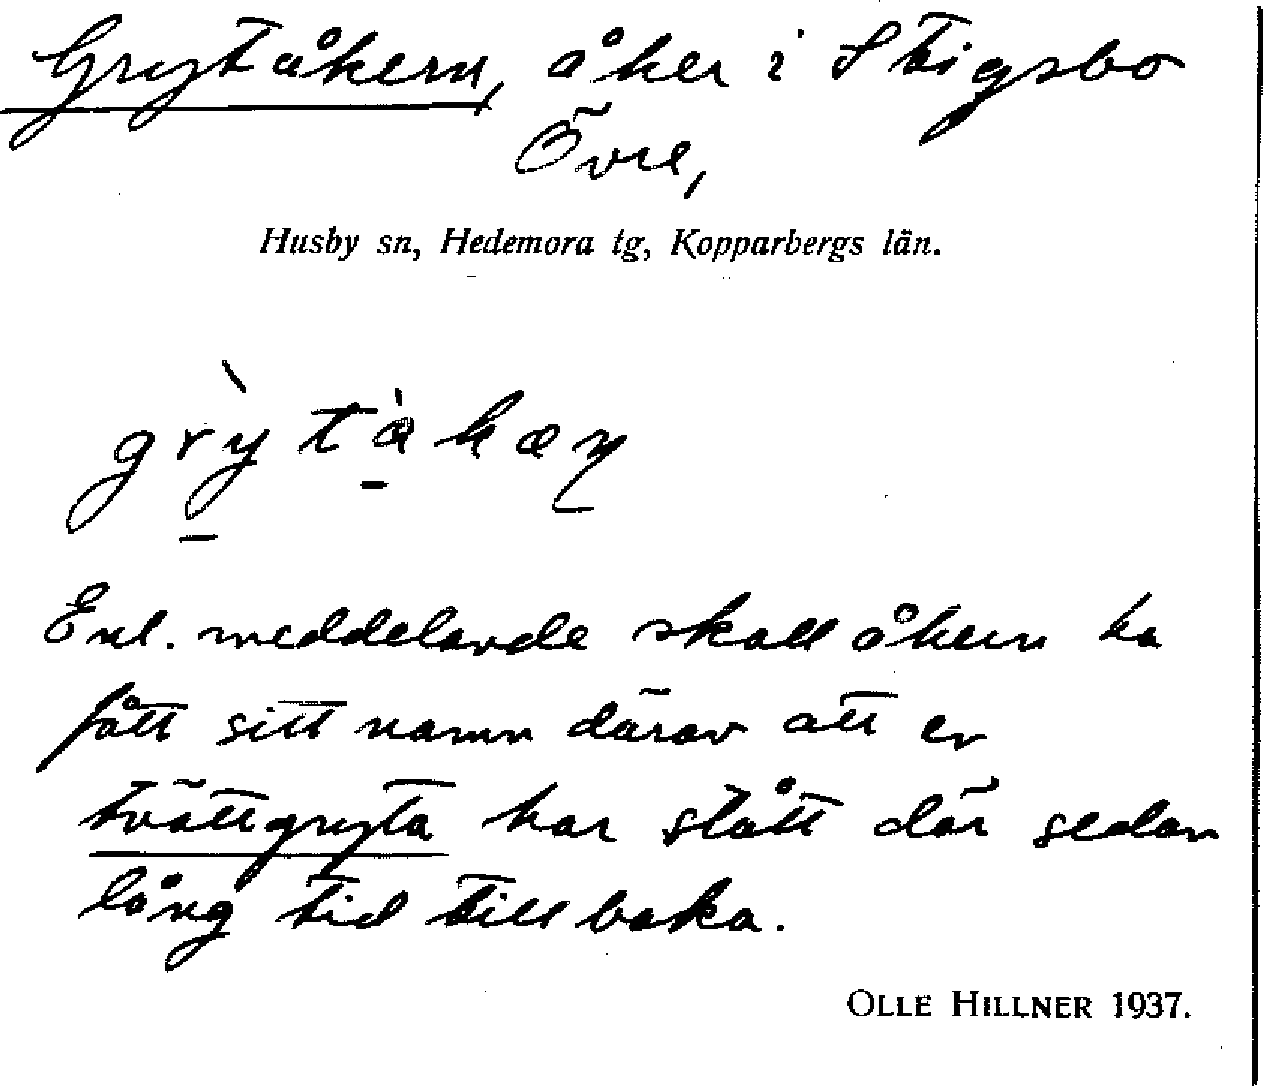 Grytåkern, åker i Stigsbo
Övre,
Husby sn, Hedemora tg, Kopparbergs län.
Enl. meddelande skall åkern ha
fått sitt namn därav att en
tvättgryta har stått där sedan
lång tid tillbaka.
OLLE HILLNER 1937.